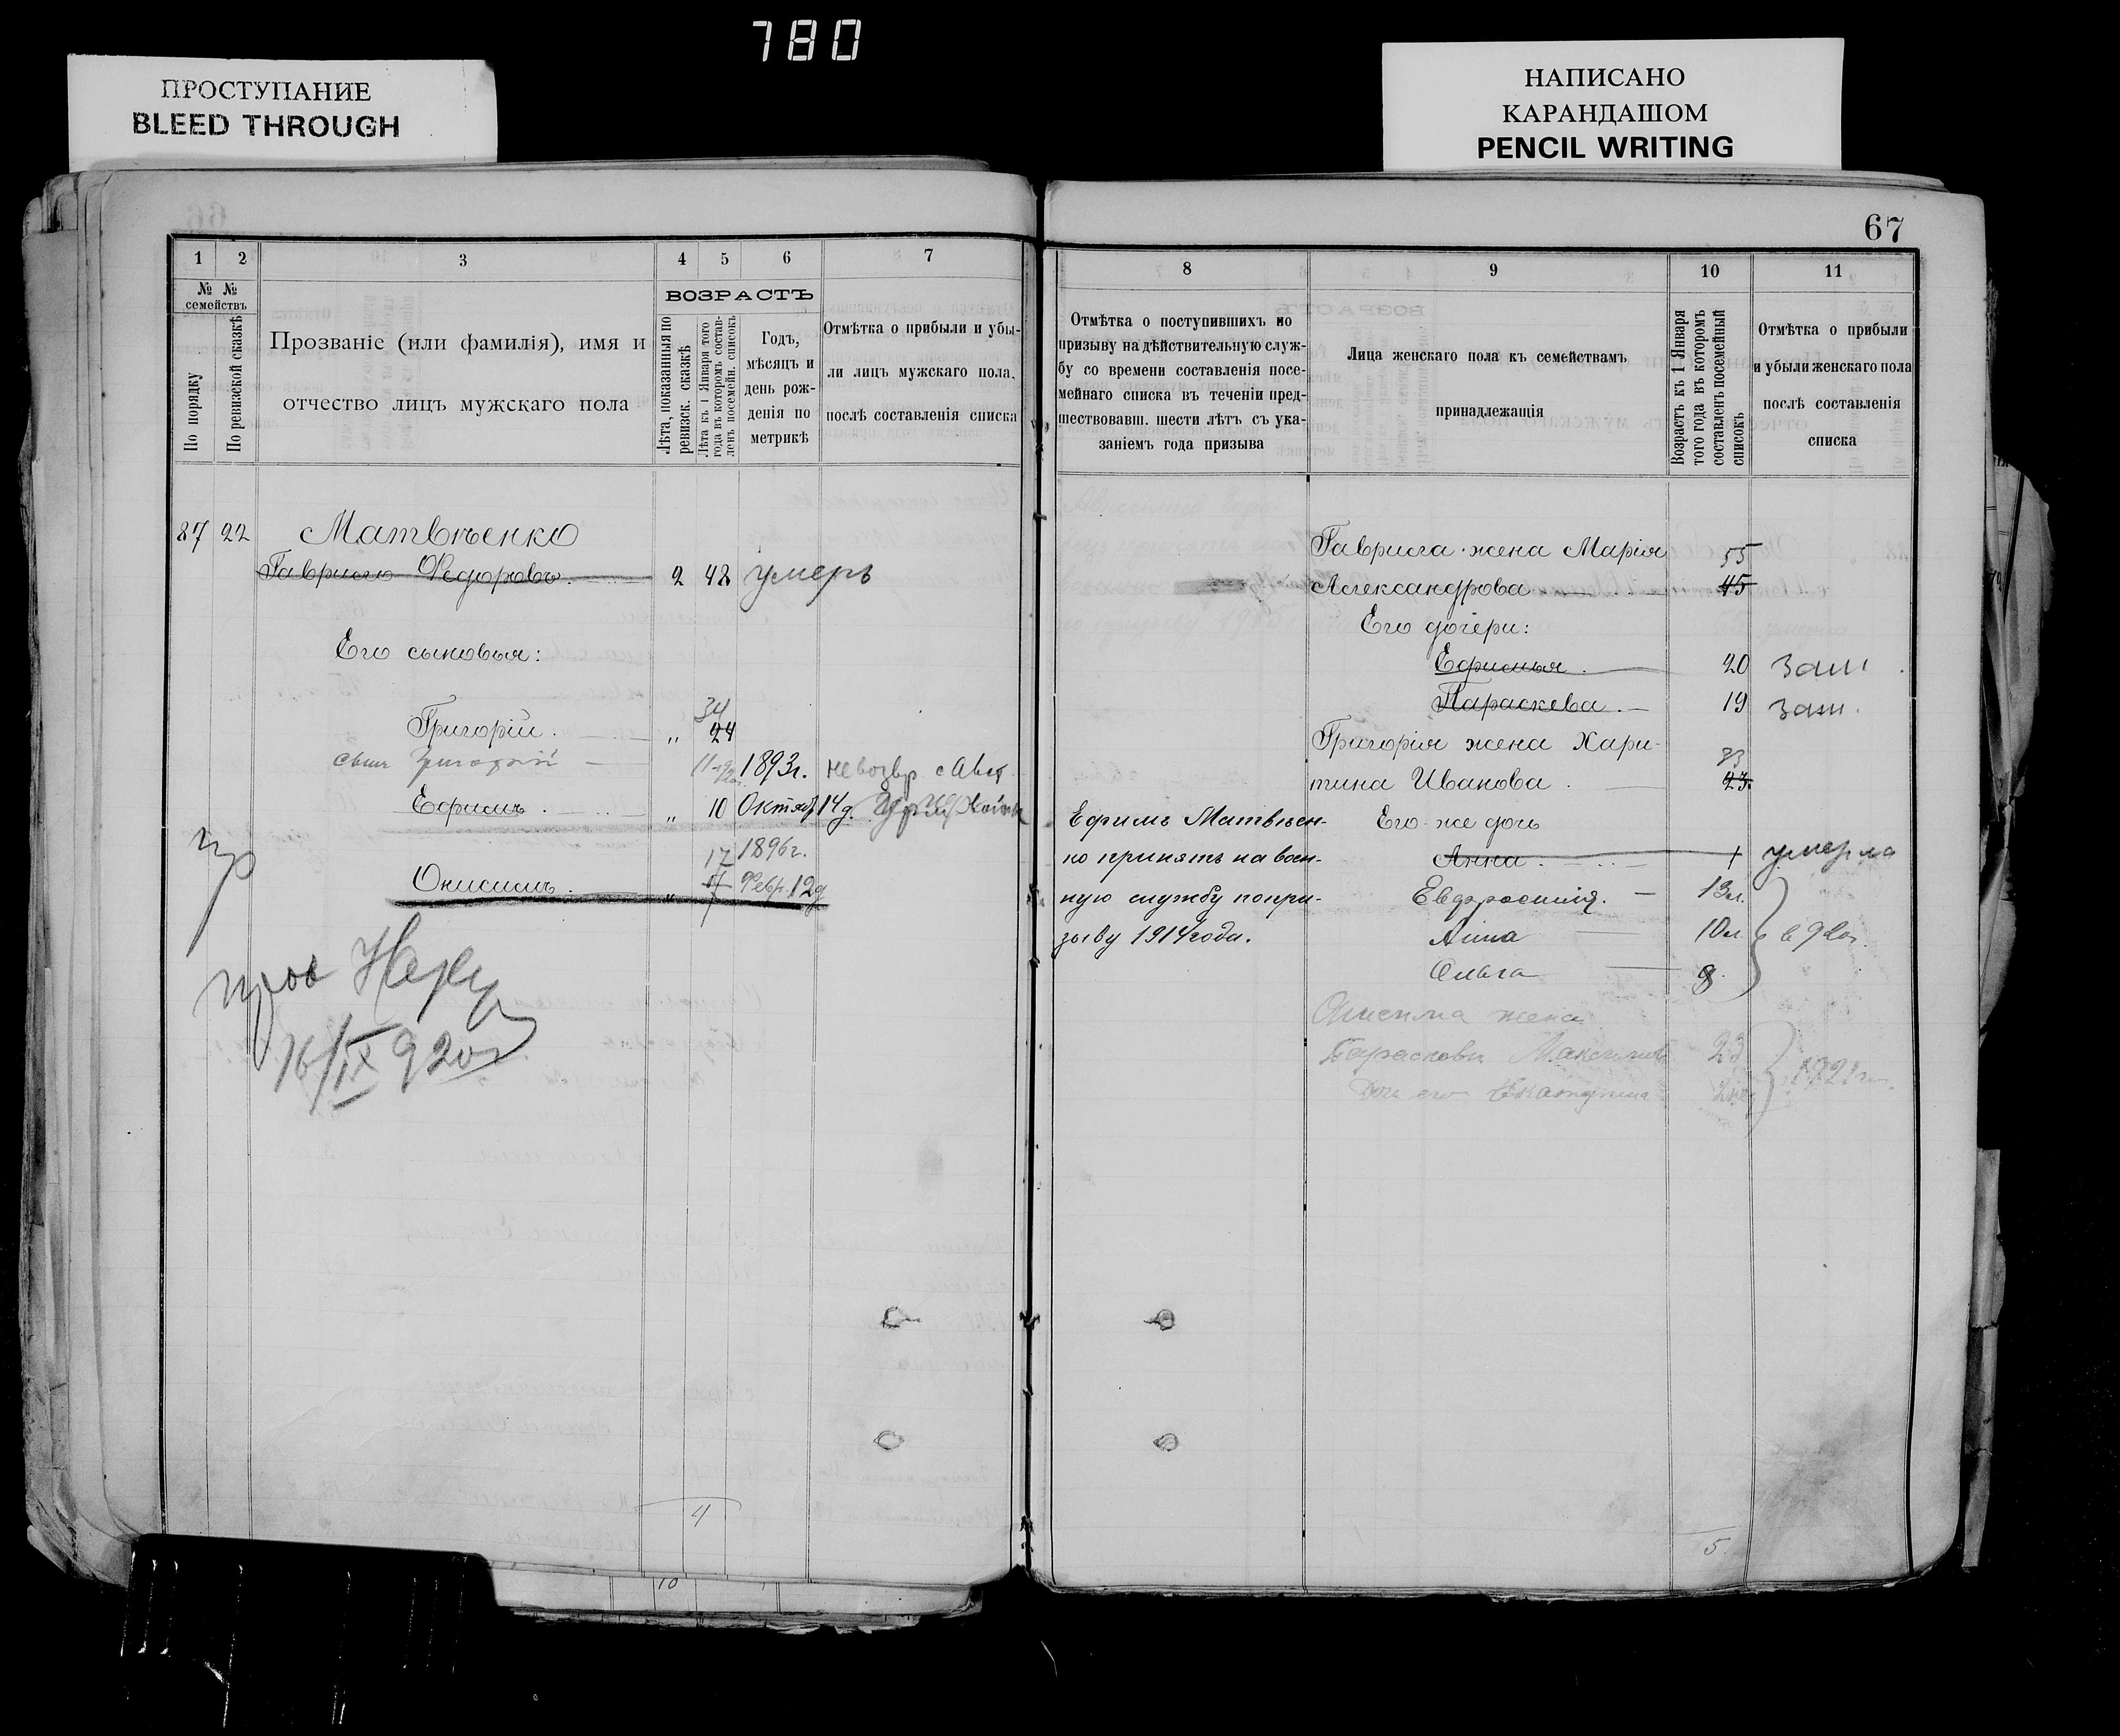 780
ПРОСТУПАНИЕ
BLEED THROUGH
НАПИСАНО
КАРАНДАШОМ
PENCIL WRITING
67
1 2 3 4 5 6 7
№ № семействъ
По порядку
По ревизской сказкѣ
Прозваніе (или фамилія), имя и
отчество лицъ мужскаго пола
ВОЗРАСТЪ
Лѣта, показанныя по
ревизск. сказкѣ
Лѣта къ 1 Января того
года въ которомъ состав-
ленъ посемейн. списокъ
Годъ,
мѣсяцъ и
день рож-
денія по
метрикѣ
Отмѣтка о прибыли и убы-
ли лицъ мужскаго пола,
послѣ составленія списка
87 22 Матвѣенко
Гавриило Ѳедоровъ 2 42 умеръ
Его сыновья:
34
Григорій „ 24
сынъ Григорій 1893г. невозвр с
Ефимъ „ 10 Октяб 14 д.
1896г.
17
Онисимъ „ Февр. 12 д
пр
Нар
16/IX 920г
4
10
8 9 10 11
Отмѣтка о поступившихъ по
призыву на дѣйствительную служ-
бу со времени составленія посе-
мейнаго списка въ теченіи пред-
шествовавш. шести лѣтъ съ ука-
заніемъ года призыва
Лица женскаго пола къ семействамъ
принадлежащія
Возрастъ къ 1 Января
того года въ которомъ
составленъ посемейный
списокъ
Отмѣтка о прибыли
и убыли женскаго пола
послѣ составленія
списка
Гаврила жена Марія 55
Александрова 45
Его дочери:
Ефимья 20 зам
Параскева 19 зам.
Григорія жена Хари-
33
тина Иванова 23
Ефимъ Матвѣен- Его-же дочь
ко принятъ на воен- Анна 1 умерла
ную службу по при- Евдросинія. 13л.
зыву 1914 года. Анна 10л в 920г.
Ольга 8
Онисима жена
Параскева Максимов 23
Дочь его Екатерина 1921г.
5